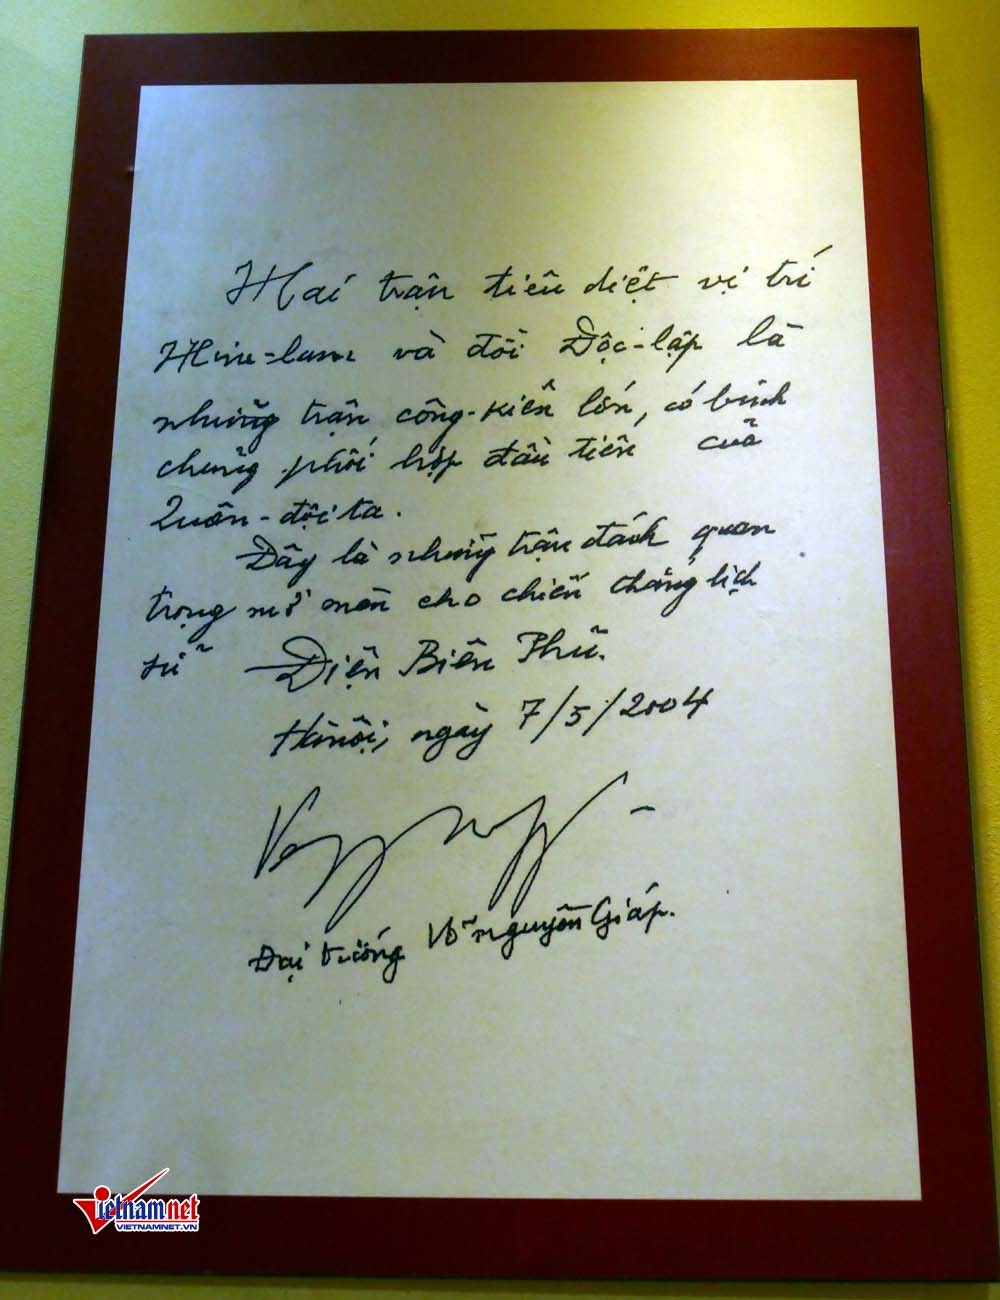 Hai trận tiêu diệt vị trí
Him-lam và đồi Độc-lập là
những trận công-kiên lớn, có binh
chủng phối hợp đầu tiên của
Quân-đội ta.
Đây là những trận đánh quan
trọng mở màn cho chiến thắng lịch
sử Điện Biên Phủ.
Hà nội, ngày 7/5/2004
Đại tướng Võ nguyên Giáp.
vietnamnet
VIETNAMNET.VN